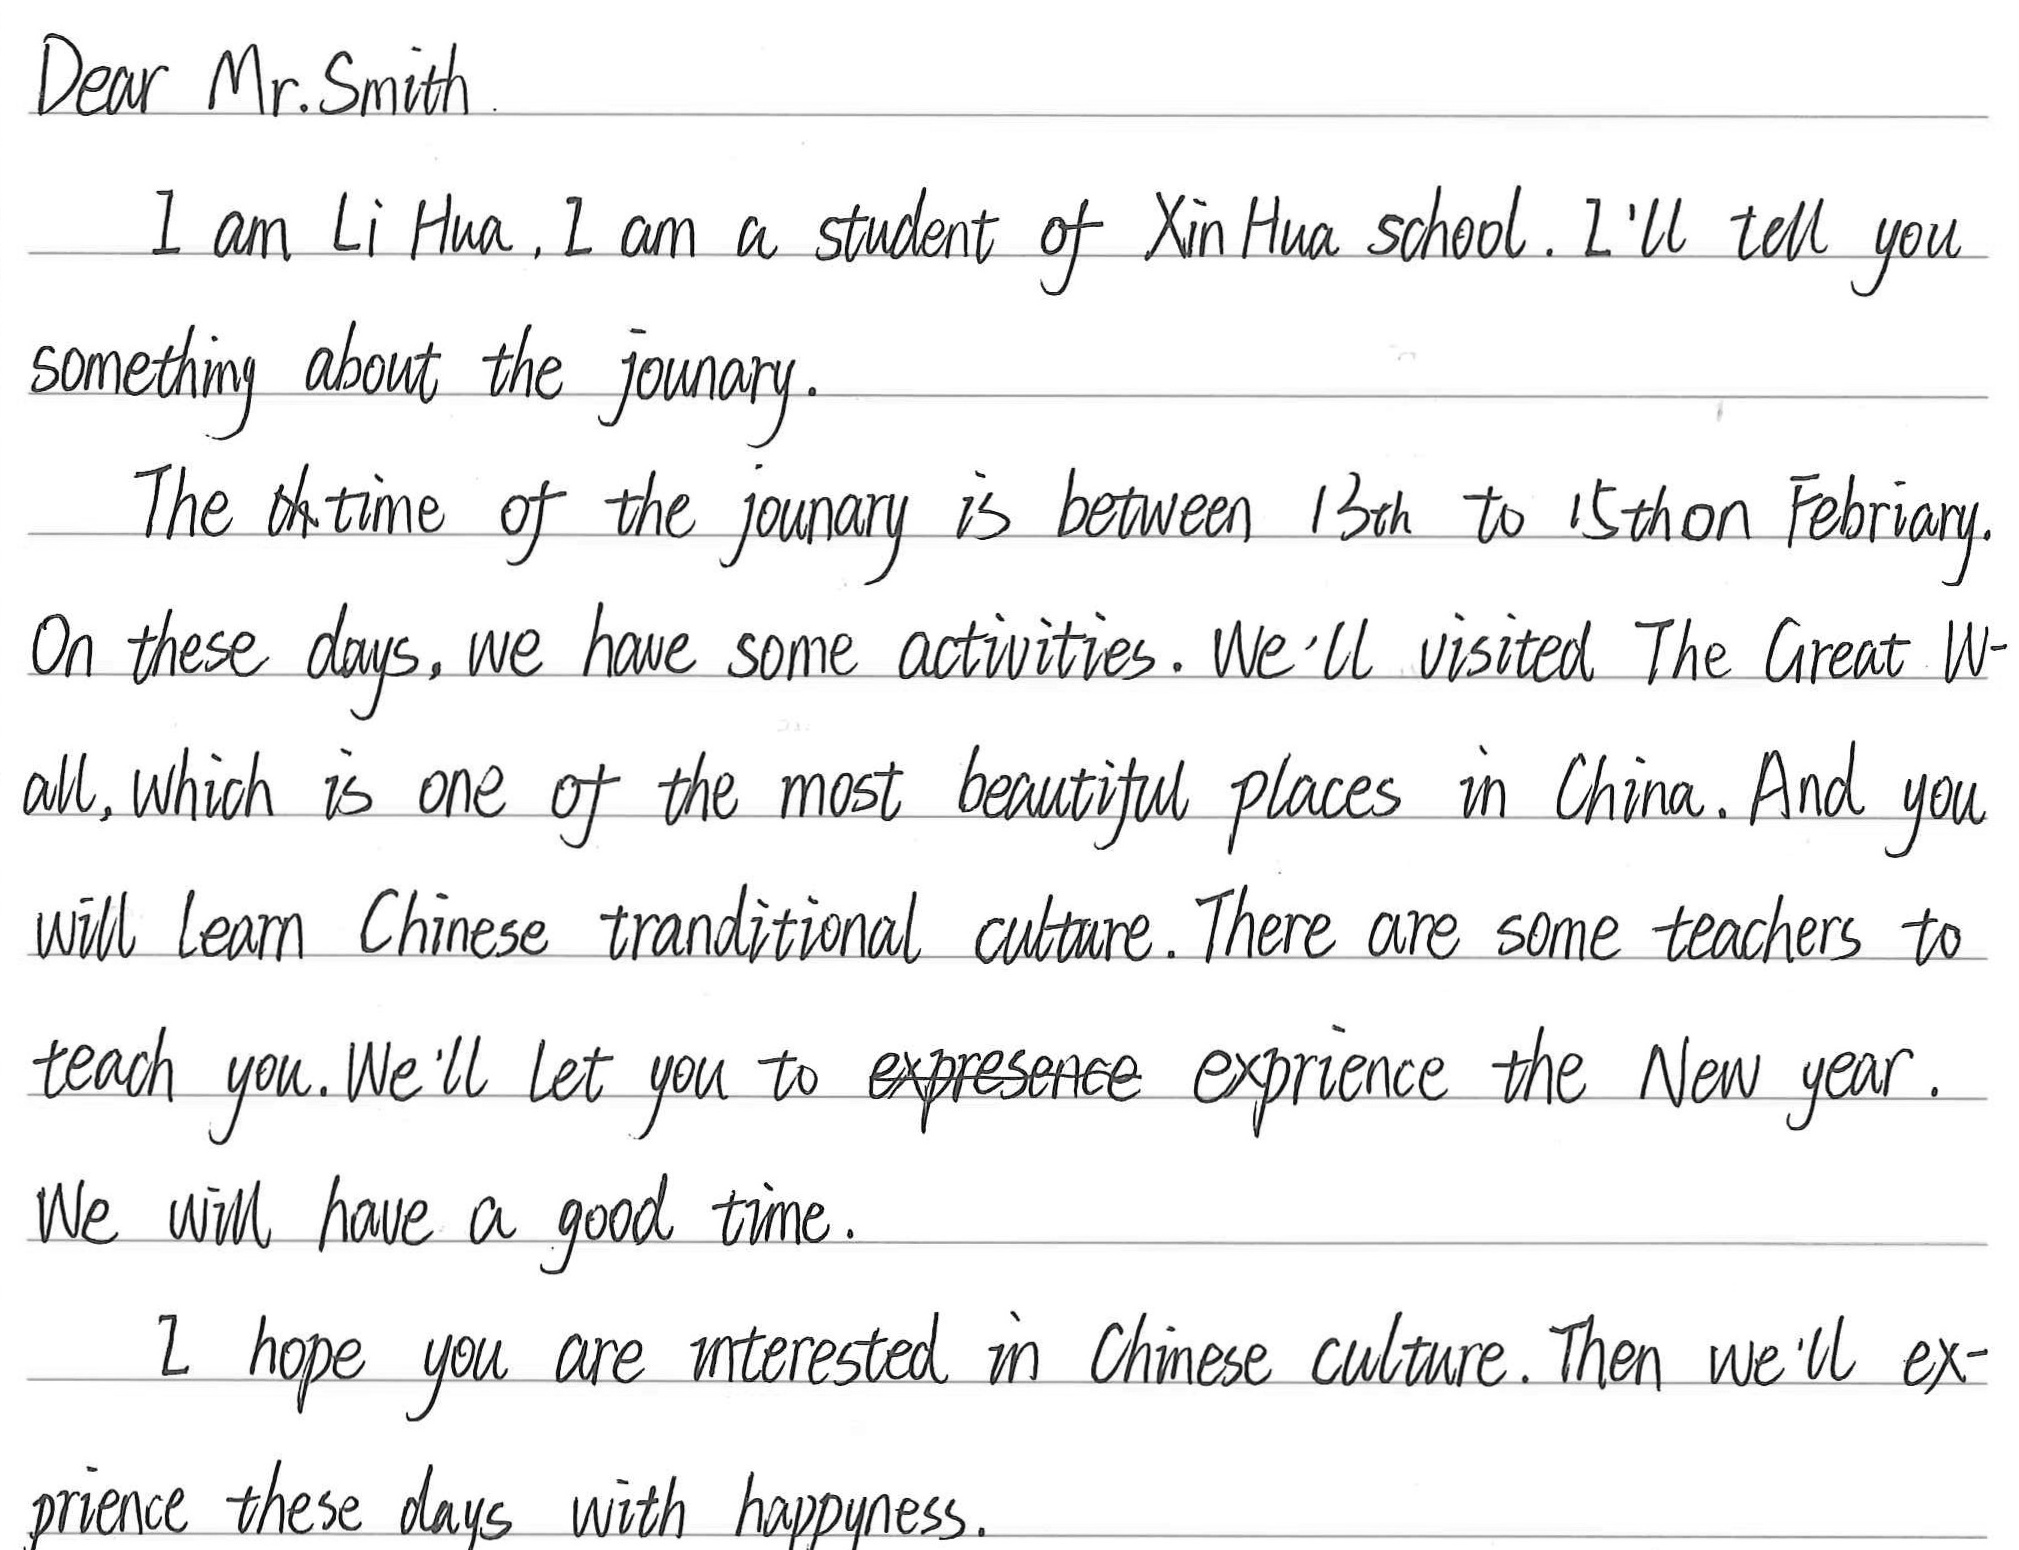 Dear Mr. Smith.
I am Li Hua. I am a student of Xin Hua school. I'll tell you
something about the jounary.
The time of the jounary is between 13th to 15th on Febriary.
On these days, we have some activities. We'll visited The Great W-
all, which is one of the most beautiful places in China. And you
will learn Chinese tranditional culture. There are some teachers to
teach you. We'll let you to expresence exprience the New year.
We will have a good time.
I hope you are interested in Chinese culture. Then we'll ex-
prience these days with happyness.